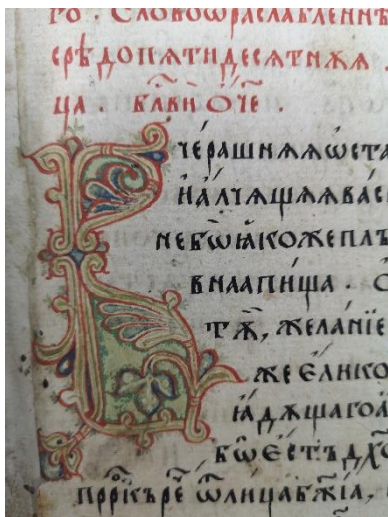 го. Словоѡраслабленнѣ
срѣдопѧтидесѧтнѫѫ .
ца . бл҃виѻч҃е .
Вчерашнѧѧѡста
налчѫщѧѧвас
небѡꙗкожеплъ
внаапища . О
тѫ҃, желанїе
жеєлико
ꙗдѫщагоа
бѡестъдх҃о
прр҃кърее҃ ѿлицабж҃їа,